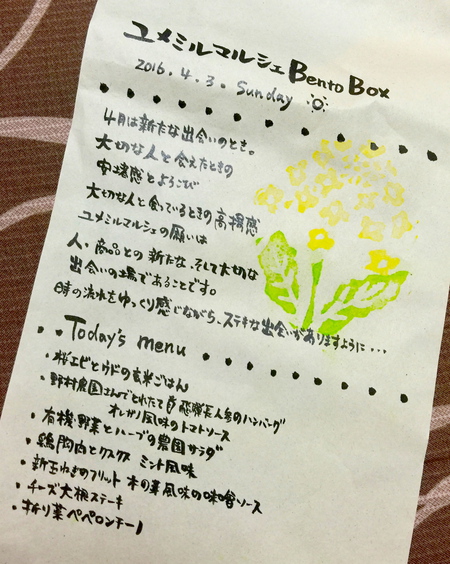 ユメミルマルシェ Bento Box
2016.4.3. Sunday
4月は新たな出会いのとき。
大切な人と会えたときの
安堵感とよろこび
大切な人と食っているときの高揚感
ユメミルマルシェの願いは
人・商品との新たな、そして大切な
出会いの場であることです。
時の流れをゆっくり感じながら、ステキな出会いがありますように...
Today's menu
・桜エビとウドの玄米ごはん
・野村農園さんでとれたて 人参のハンバーグ
オレガノ風味のトマトソース
・有機野菜とハーブの農園サラダ
・鶏胸肉とクスクス ミント風味
・新玉ねぎのフリット 木の芽風味の味噌ソース
・チーズ大根ステーキ
・折り菜ペペロンチーノ